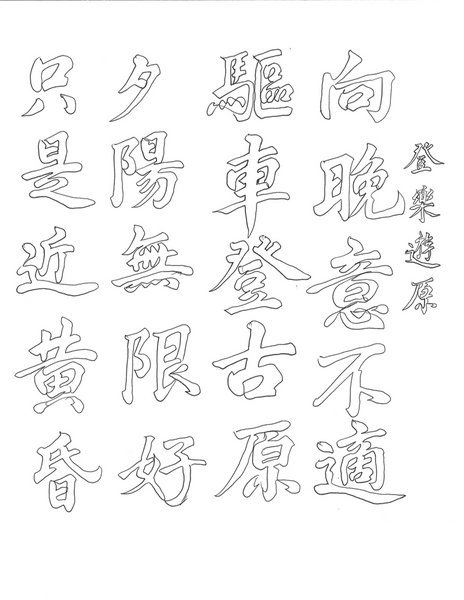 登樂遊原
向晚意不適
驅車登古原
夕陽無限好
只是近黃昏